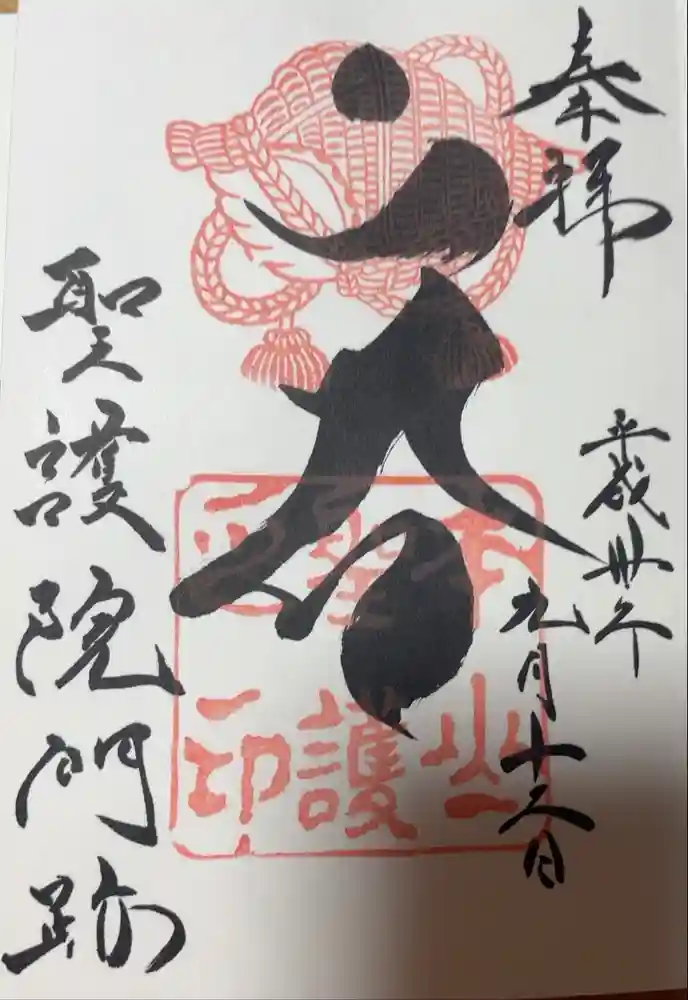 奉拝
平成卅年
九月十日
本山
聖護
印
聖護院門跡